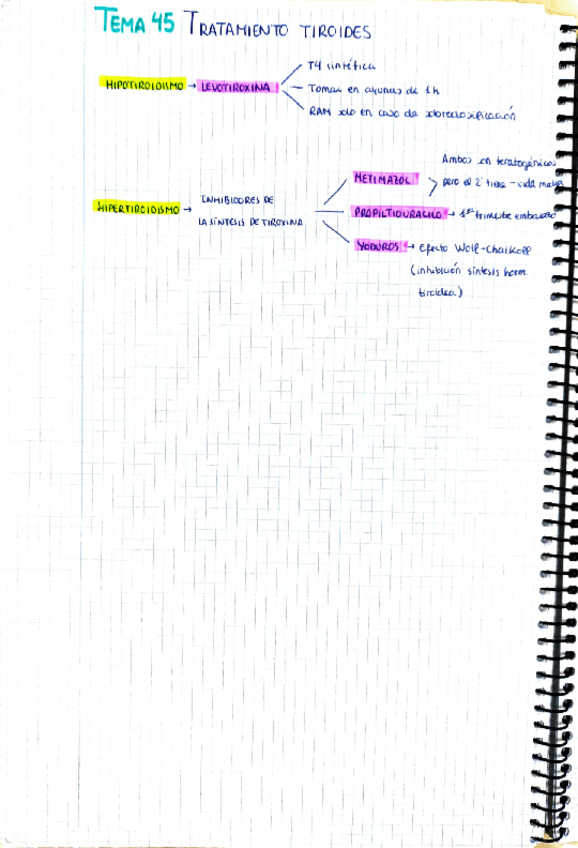 TEMA 45 TRATAMIENTO TIROIDES
HIPOTIROIDISMO → LEVOTIROXINA
T4 sintética
Tomar en ayunas de 1 h
RAM solo en caso de sobredosificación
HIPERTIROIDISMO →
INHIBIDORES DE
LA SÍNTESIS DE TIROXINA
METIMAZOL
Ambos son teratogénicos
pero el 2º tiene - vida media
PROPILTIOURACILO → 1er trimestre embarazo
YODUROS → Efecto Wolff-Chaikoff
(inhibición síntesis horm.
tiroidea)